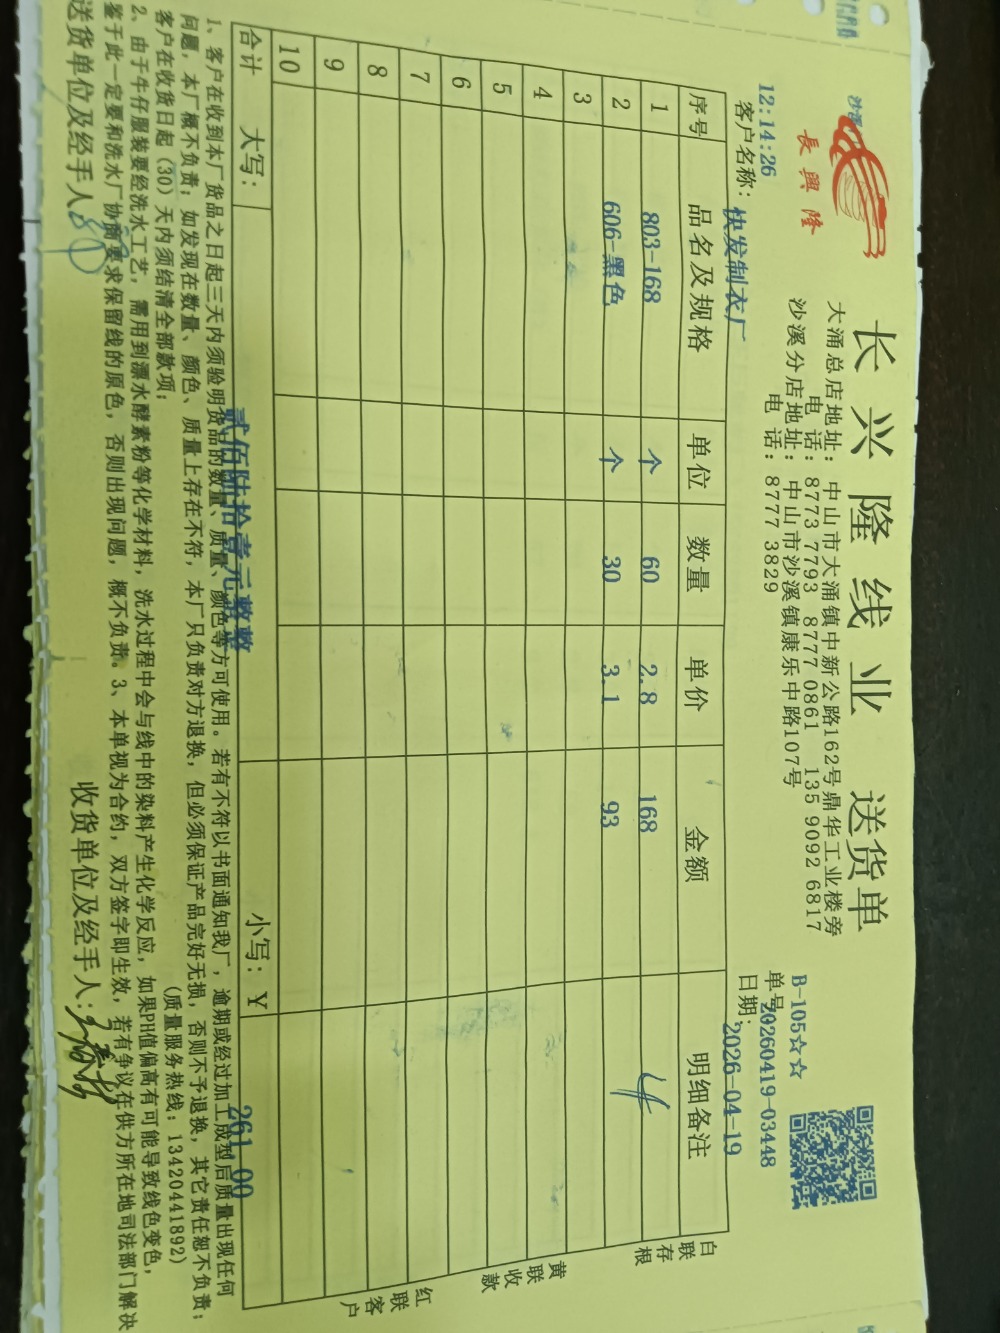 沙溪
長興隆
长兴隆线业 送货单
大涌总店地址：中山市大涌镇中新公路162号鼎华工业楼旁
电 话：8773 7793 8777 0861 135 9092 6817
沙溪分店地址：中山市沙溪镇康乐中路107号
电 话：8777 3829
B-105☆☆
单号 20260419-03448
12:14:26
客户名称：快发制衣厂
日期：2026-04-19
序号 品名及规格 单位 数量 单价 金额 明细备注
1 803-168 个 60 2.8 168
2 606-黑色 个 30 3.1 93
3
4
5
6
7
8
9
10
合计 大写：贰佰陆拾壹元整 小写：¥ 261.00
白联存根
黄联收款
红联客户
1、客户在收到本厂货品之日起三天内须验明货品的数量、质量、颜色等方可使用。若有不符以书面通知我厂，逾期或经过加工成型后质量出现任何
问题，本厂概不负责；如发现在数量、颜色、质量上存在不符，本厂只负责对方退换，但必须保证产品完好无损，否则不予退换，其它责任恕不负责；
客户在收货日起（30）天内须结清全部款项； （质量服务热线：13420441892）
2、由于牛仔服装要经洗水工艺，需用到漂水酵素粉等化学材料，洗水过程中会与线中的染料产生化学反应，如果PH值偏高有可能导致线色变色，
鉴于此一定要和洗水厂协商要求保留线的原色，否则出现问题，概不负责。3、本单视为合约，双方签字即生效，若有争议在供方所在地司法部门解决
送货单位及经手人： 收货单位及经手人：